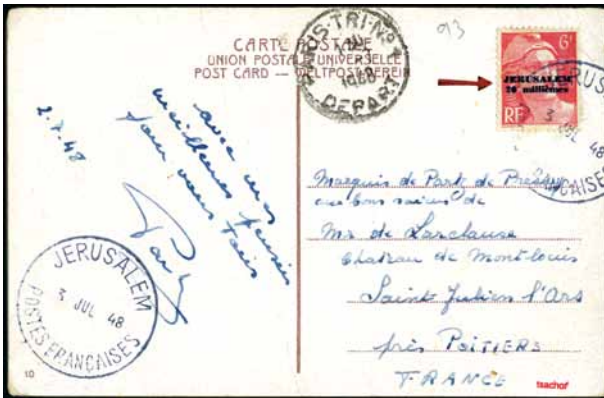 CARTE POSTALE
UNION POSTALE UNIVERSELLE
POST CARD — WELTPOSTVEREIN
PARIS·TRI·No 1
1948
DEPART
93
6f
JERUSALEM
20 millièmes
RF
JERUSALEM
3 JUL 48
POSTES FRANÇAISES
2.7.48
avec mes
meilleures pensées
pour vous tous
JERUSALEM
3 JUL 48
POSTES FRANÇAISES
Marquis de Park de
aux bons soins de
Mr de Larclause
Chateau de Mont-louis
Saint Julien l'Ars
près POITIERS
FRANCE
10
tsachor